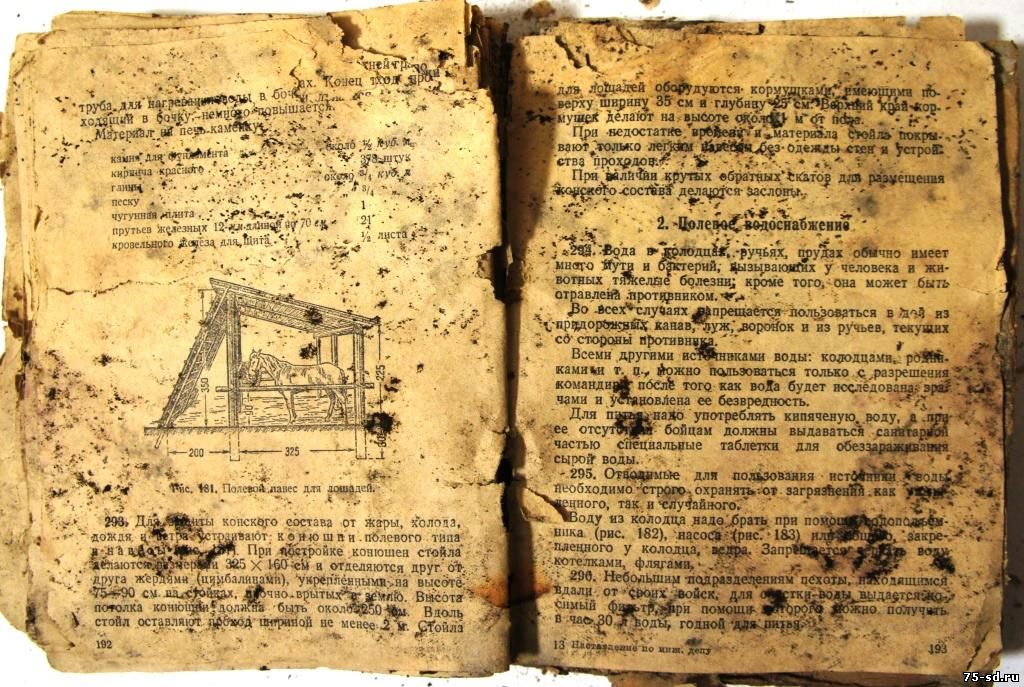 хней гр
ах. Конец
труба для нагревания воды в бочку
ходящий в бочку, немного повышается.
Материал на печь-каменку:
камня для фундамента около ½ куб. м
кирпича красного 375 штук
глины около ¾ куб. м
песку ¾ "
чугунная плита 1
прутьев железных 12-мм длиной до 70 см 21
кровельного железа для щита ½ листа
350
225
200
325
Рис. 181. Полевой навес для лошадей.
293. Для защиты конского состава от жары, холода,
дождя и ветра устраивают конюшни полевого типа
и навесы (рис. 181). При постройке конюшен стойла
делаются размерами 325 × 160 см и отделяются друг от
друга жердями (цимбалинами), укреплёнными на высоте
75—90 см на стойках, прочно врытых в землю. Высота
потолка конюшни должна быть около 250 см. Вдоль
стойл оставляют проход шириной не менее 2 м. Стойла
192
для лошадей оборудуются кормушками, имеющими по-
верху ширину 35 см и глубину 25 см. Верхний край кор-
мушек делают на высоте около 1 м от пола.
При недостатке времени и материала стойла покры-
вают только легким навесом без одежды стен и устрой-
ства проходов.
При наличии крутых обратных скатов для размещения
конского состава делаются заслоны.
2. Полевое водоснабжение
294. Вода в колодцах, ручьях, прудах обычно имеет
много мути и бактерий, вызывающих у человека и жи-
вотных тяжелые болезни; кроме того, она может быть
отравлена противником.
Во всех случаях запрещается пользоваться водой из
придорожных канав, луж, воронок и из ручьев, текущих
со стороны противника.
Всеми другими источниками воды: колодцами, родни-
ками и т. п., можно пользоваться только с разрешения
командира после того как вода будет исследована вра-
чами и установлена ее безвредность.
Для питья надо употреблять кипяченую воду, а при
ее отсутствии бойцам должны выдаваться санитарной
частью специальные таблетки для обеззараживания
сырой воды.
295. Отводимые для пользования источники воды
необходимо строго охранять от загрязнений как умыш-
ленного, так и случайного.
Воду из колодца надо брать при помощи водоподъем-
ника (рис. 182), насоса (рис. 183) или закре-
пленного у колодца, ведра. Запрещается черпать воду
котелками, флягами.
296. Небольшим подразделениям пехоты, находящимся
вдали от своих войск, для очистки воды выдается но-
симый фильтр, при помощи которого можно получить
в час 30 л воды, годной для питья.
13 Наставление по инж. делу
193
75-sd.ru